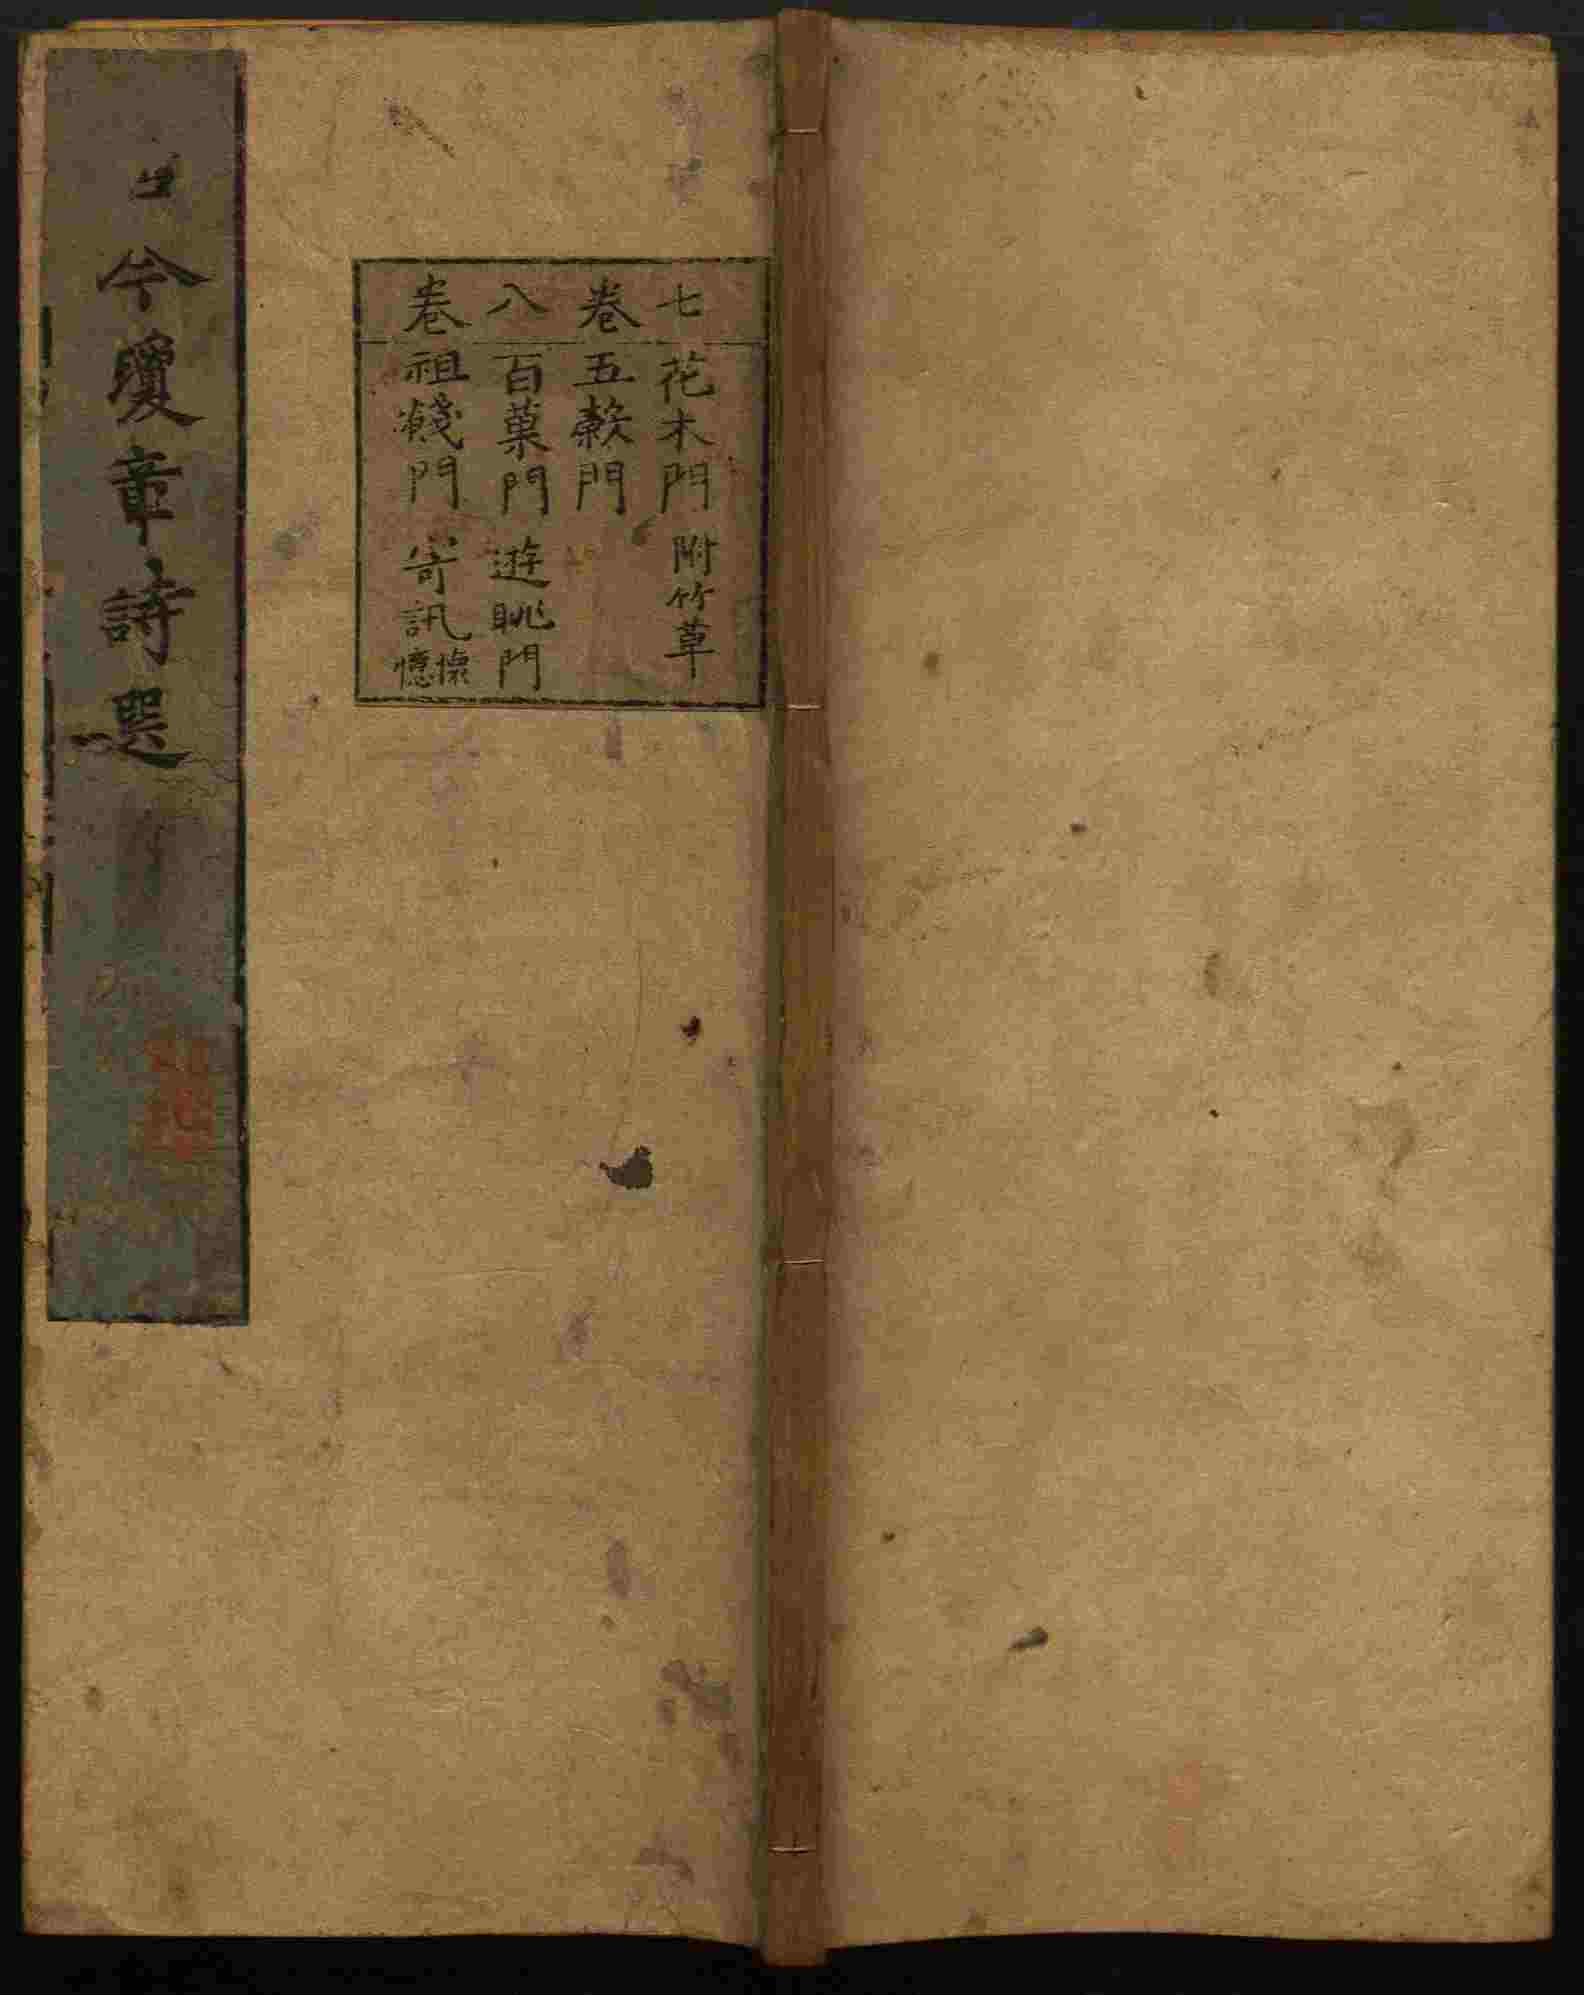 七 花木門 附竹草
卷 五穀門
八 百菓門 遊眺門
卷 祖餞門 寄訊 懷憶
古今瓊章詩選